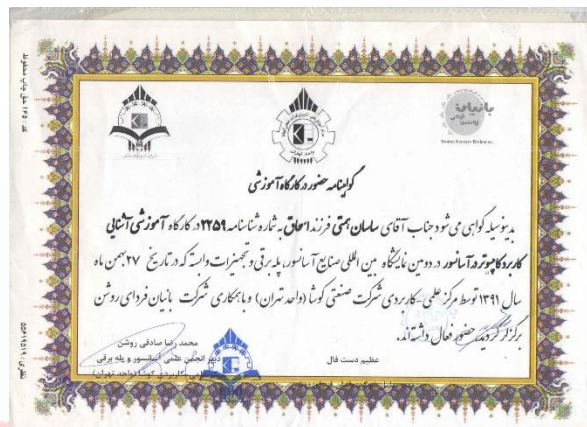 بانیان
گواهینامه حضور در کارگاه آموزشی
بدینوسیله گواهی می شود جناب آقای سامان همتی فرزند اسحاق به شماره شناسنامه ۲۲۵۹ در کارگاه آموزشی آشنایی
کاربرد کامپیوتر در آسانسور در دومین نمایشگاه بین المللی صنایع آسانسور، پله برقی و تجهیزات وابسته که در تاریخ ۲۷ بهمن ماه
سال ۱۳۹۱ توسط مرکز علمی - کاربردی شرکت صنعتی کوشا (واحد تهران) و باهمکاری شرکت بانیان فردای روشن
برگزار گردید، حضور فعال داشتند.
محمد رضا صادقی روشن
دبیر انجمن علمی آسانسور و پله برقی
علمی کاربردی کوشا (واحد تهران)
عظیم دست فال
کد : ۱۶۵ حق چاپ محفوظ
تلفن : ۵۵۶۱۹۵۱۹